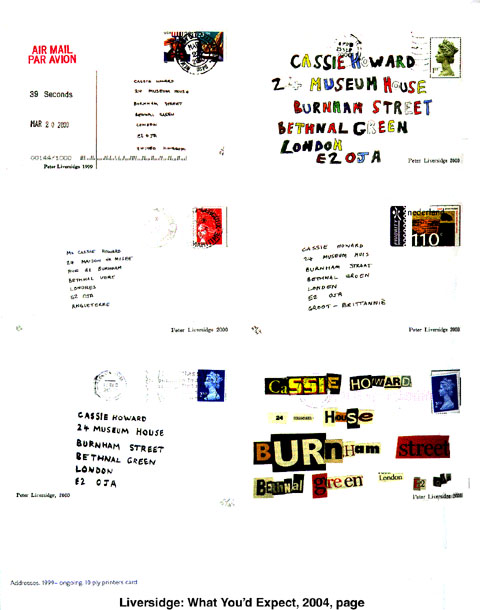 AIR MAIL
PAR AVION
39 Seconds
MAR 20 2000
00144/1000
CASSIE HOWARD
24 MUSEUM HOUSE
BURNHAM STREET
BETHNAL GREEN
LONDON
E2 0JA
UNITED KINGDOM
Peter Liversidge 1999
CASSIE HOWARD
24 MUSEUM HOUSE
BURNHAM STREET
BETHNAL GREEN
LONDON
E2 0JA
Peter Liversidge 2000
MS CASSIE HOWARD
24 MAISON DU MUSEE
RUE DE BURNHAM
BETHNAL VERT
LONDRES
E2 0JA
ANGLETERRE
Peter Liversidge 2000
nederland
110
PRIORITY
CASSIE HOWARD
24 MUSEUM HUIS
BURNHAM STRAAT
BETHNAL GROEN
LONDEN
E2 0JA
GROOT-BRITTANNIË
Peter Liversidge 2000
CASSIE HOWARD
24 MUSEUM HOUSE
BURNHAM STREET
BETHNAL GREEN
LONDON
E2 0JA
Peter Liversidge, 2000
CaSSIE HOWARD
24 MUSEUM HouSe
BURnHam street
BEtHNal green London E2 0JA
Peter Liversidge 2000
Addresses, 1999– ongoing, 10 ply printers card
Liversidge: What You'd Expect, 2004, page